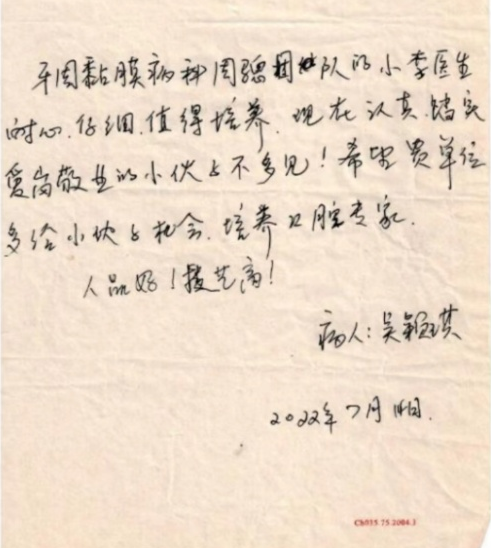 牙周黏膜病科周骢团队的小李医生
耐心、仔细、值得培养、现在认真、踏实
爱岗敬业的小伙子不多见！希望贵单位
多给小伙子机会、培养口腔专家.
人品好！技艺高！
病人：吴琪
2022年7月日.
Ch035.75.2004.1